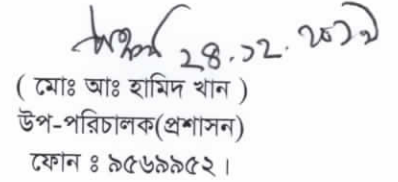 ২৪.১২.২০১৭
( মোঃ আঃ হামিদ খান )
উপ-পরিচালক(প্রশাসন)
ফোন ঃ ৯৫৬৯৯৫২।